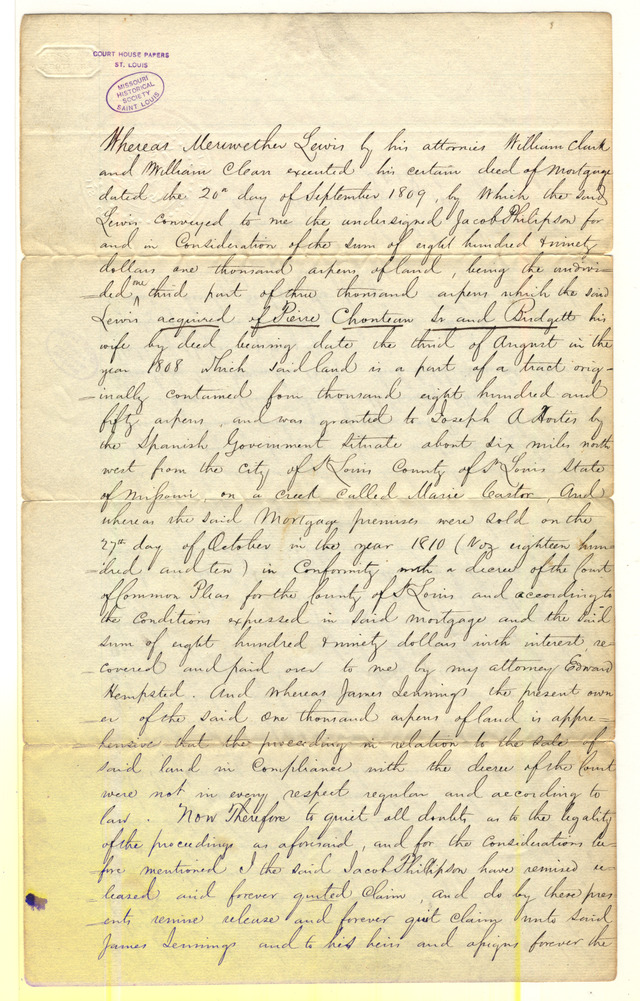 COURT HOUSE PAPERS
ST. LOUIS
MISSOURI
HISTORICAL
SOCIETY
SAINT LOUIS
Whereas Meriwether Lewis by his attornies William Clark
and William Clean executed his certain deed of Mortgage
dated the 20th day of September 1809, by Which the said
Lewis conveyed to me the undersigned Jacob Philipson for
and in Consideration of the sum of eight hundred & ninety
dollars one thousand arpens of land, being the undivi-
-ded one third part of three thousand arpens which the said
Lewis acquired of Pierre Chouteau Sr and Bridgett his
wife by deed bearing date the third of August in the
year 1808 which said land is a part of a tract orig-
-inally contained four thousand eight hundred and
fifty arpens, and was granted to Joseph A Hortes by
the Spanish Government situate about six miles north
west from the city of St Louis County of St Louis State
of Missouri, on a creek called Marie Castor, And
whereas the said Mortgage premises were sold on the
27th day of October in the year 1810 (Viz eighteen hun-
-dred and ten) in Conformity with a decree of the Court
of Common Pleas for the County of St Louis and according to
the conditions expressed in said mortgage and the said
sum of eight hundred & ninety dollars with interest re-
-covered and paid over to me by my attorney Edward
Hempsted. And whereas James Jennings the present own
-er of the said one thousand arpens of land is appre-
-hensive that the proceeding in relation to the sale of
said land in Compliance with the decree of the Court
were not in every respect regular and according to
law. Now Therefore to quiet all doubts as to the legality
of the proceedings as aforesaid, and for the considerations be-
-fore mentioned I the said Jacob Phillipson have remised re-
-leased and forever quited Claim, and do by these pres
-ents remise release and forever quit claim unto said
James Jennings and to his heirs and assigns forever the